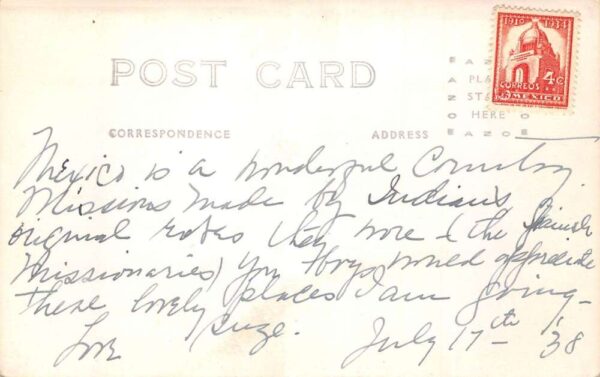 1910 1934
4¢
CORREOS
MEXICO
POST CARD
PLA
STA
HERE
CORRESPONDENCE ADDRESS
Mexico is a wonderful Country.
Missions made by Indians
original robes they wore & the Spanish
Missionaries) you boys would appreciate
these lovely places I am going—
Love Suze. July 17th - '38